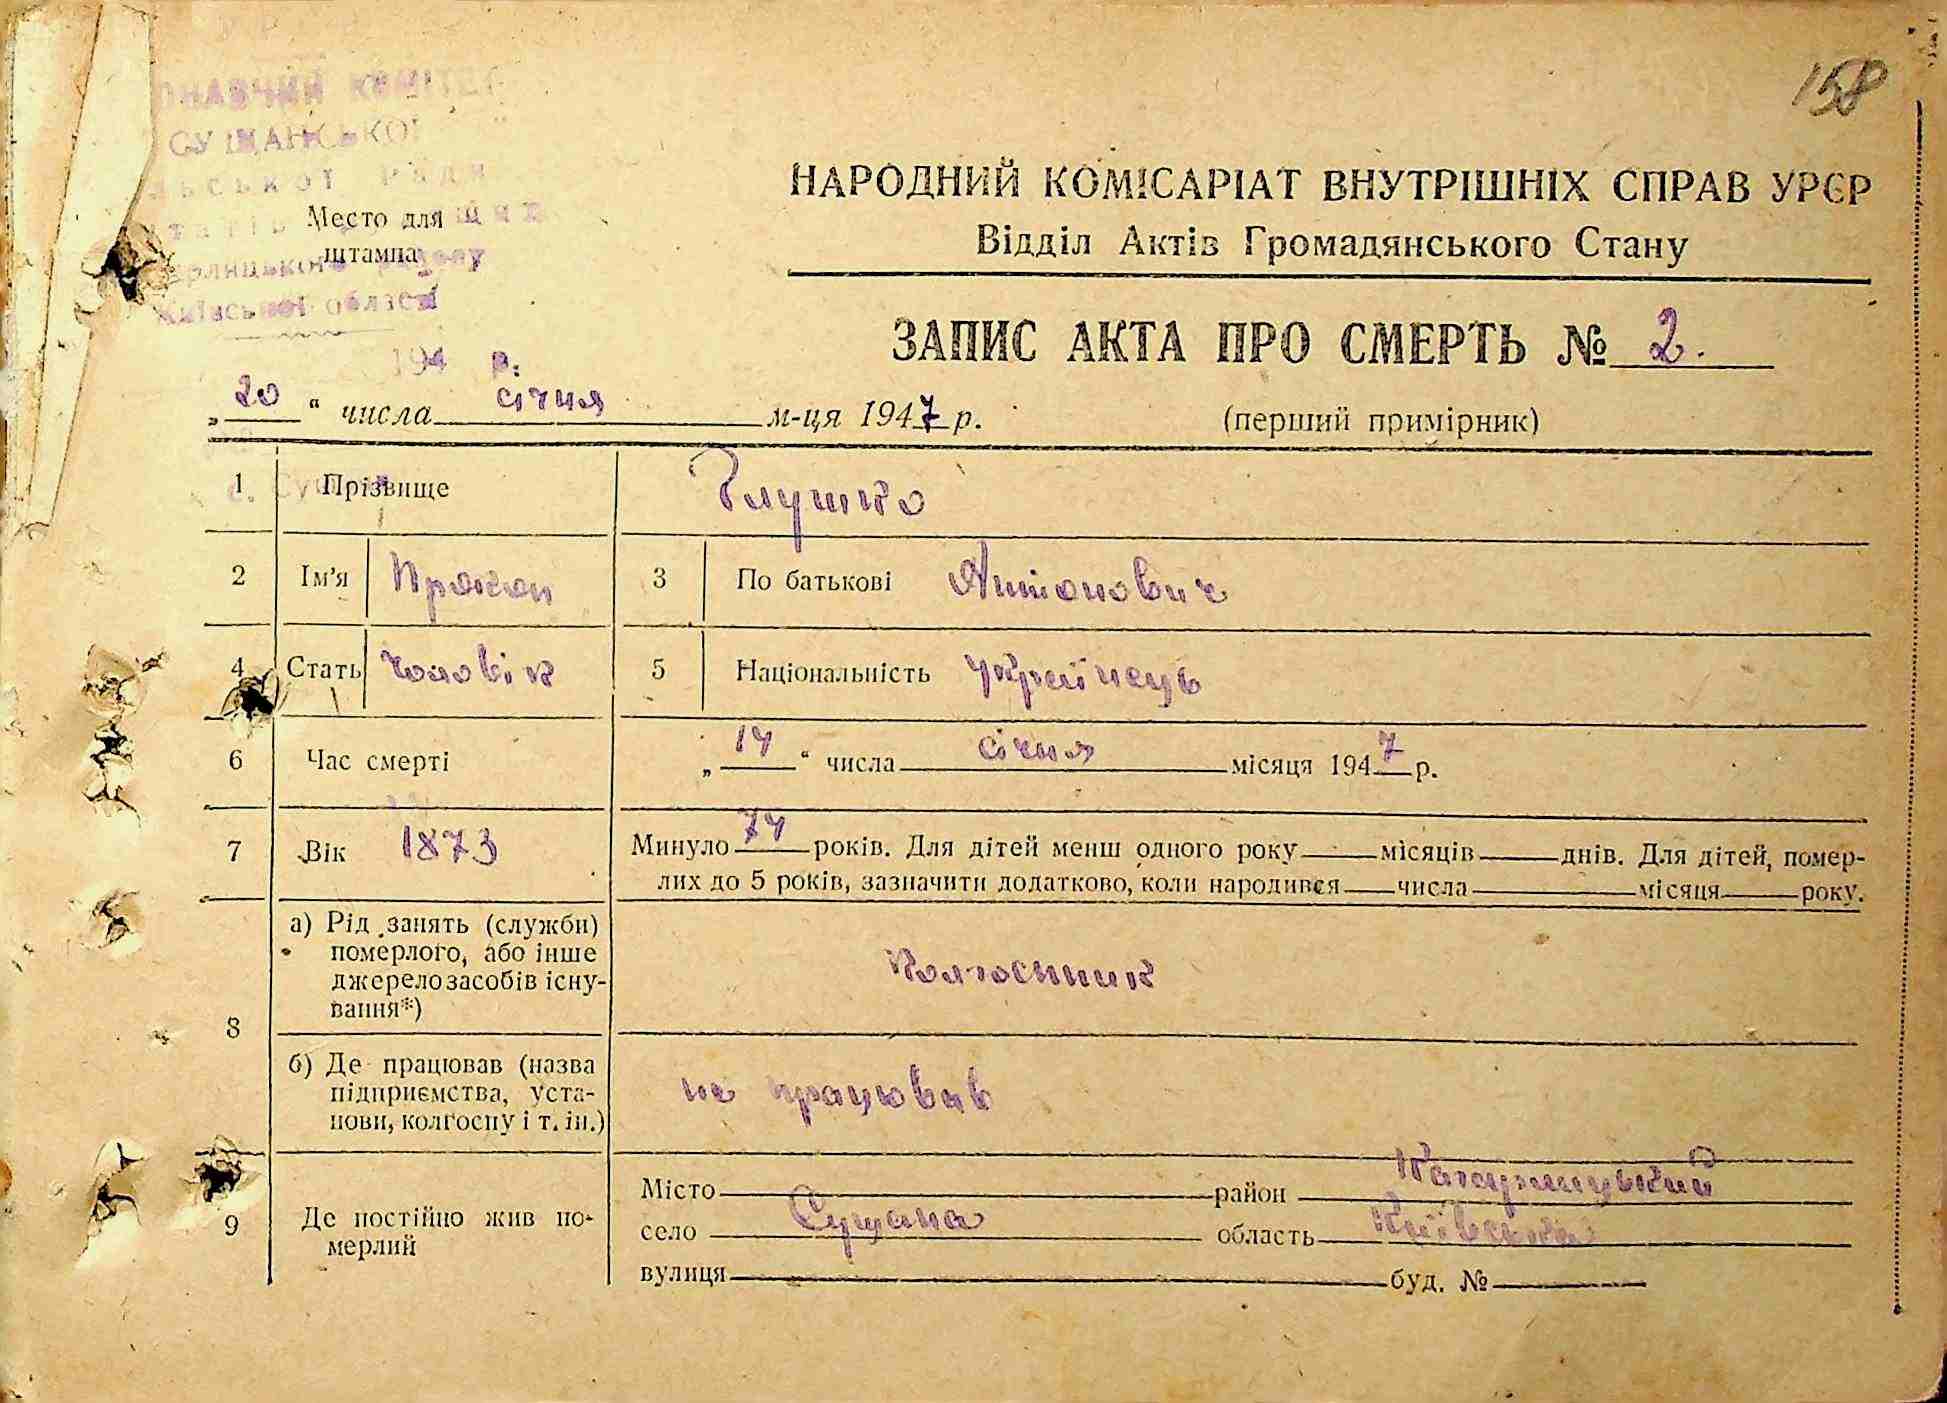 158
ОНАВЧИЙ КОМІТЕТ
СУЩАНСЬКОЇ
ЛЬСЬКОЇ РАДИ
Место для
штампа
району
Київської області
194 р.
НАРОДНИЙ КОМІСАРІАТ ВНУТРІШНІХ СПРАВ УРСР
Відділ Актів Громадянського Стану
ЗАПИС АКТА ПРО СМЕРТЬ № 2.
„20“ числа січня м-ця 1947 р. (перший примірник)
1 Прізвище Глушко
2 Ім'я Прокоп 3 По батькові Антонович
4 Стать чоловік 5 Національність Українець
6 Час смерті „14“ числа січня місяця 1947 р.
7 Вік 1873 Минуло 74 років. Для дітей менш одного року місяців днів. Для дітей, помер-
лих до 5 років, зазначити додатково, коли народився числа місяця року.
8 а) Рід занять (служби)
померлого, або інше
джерело засобів існу-
вання*)
Колгоспник
б) Де працював (назва
підприємства, уста-
нови, колгоспу і т. ін.)
не працював
9 Де постійно жив по-
мерлий
Місто район Кагарлицький
село Сущана область Київська
вулиця буд. №